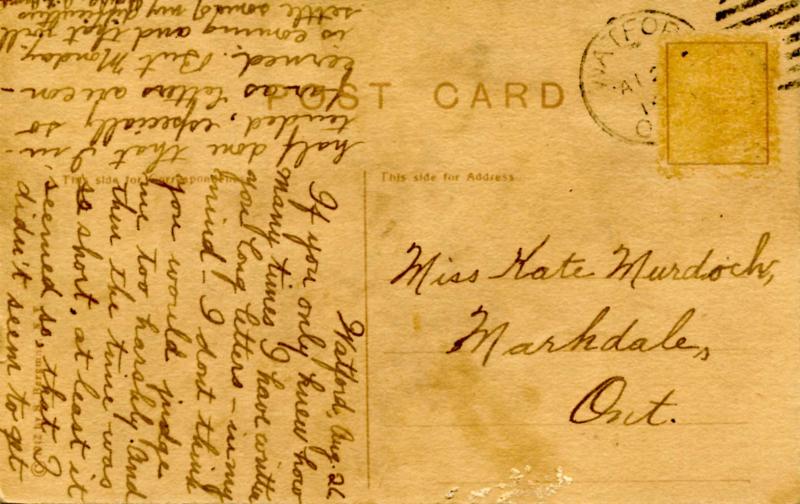 WATFORD
POST CARD
This side for Correspondence
This side for Address
Watford, Aug. 26
If you only knew how
many times I have written
you long letters - in my
mind - I dont think
you would judge
me too harshly. And
then the time was
so short, at least it
seemed so, that I
didn't seem to get
half done that I in-
tended, especially so
far as letters are con-
cerned. But Monday
is coming and that will
settle some of my difficulties
Miss Kate Murdoch,
Markdale,
Ont.